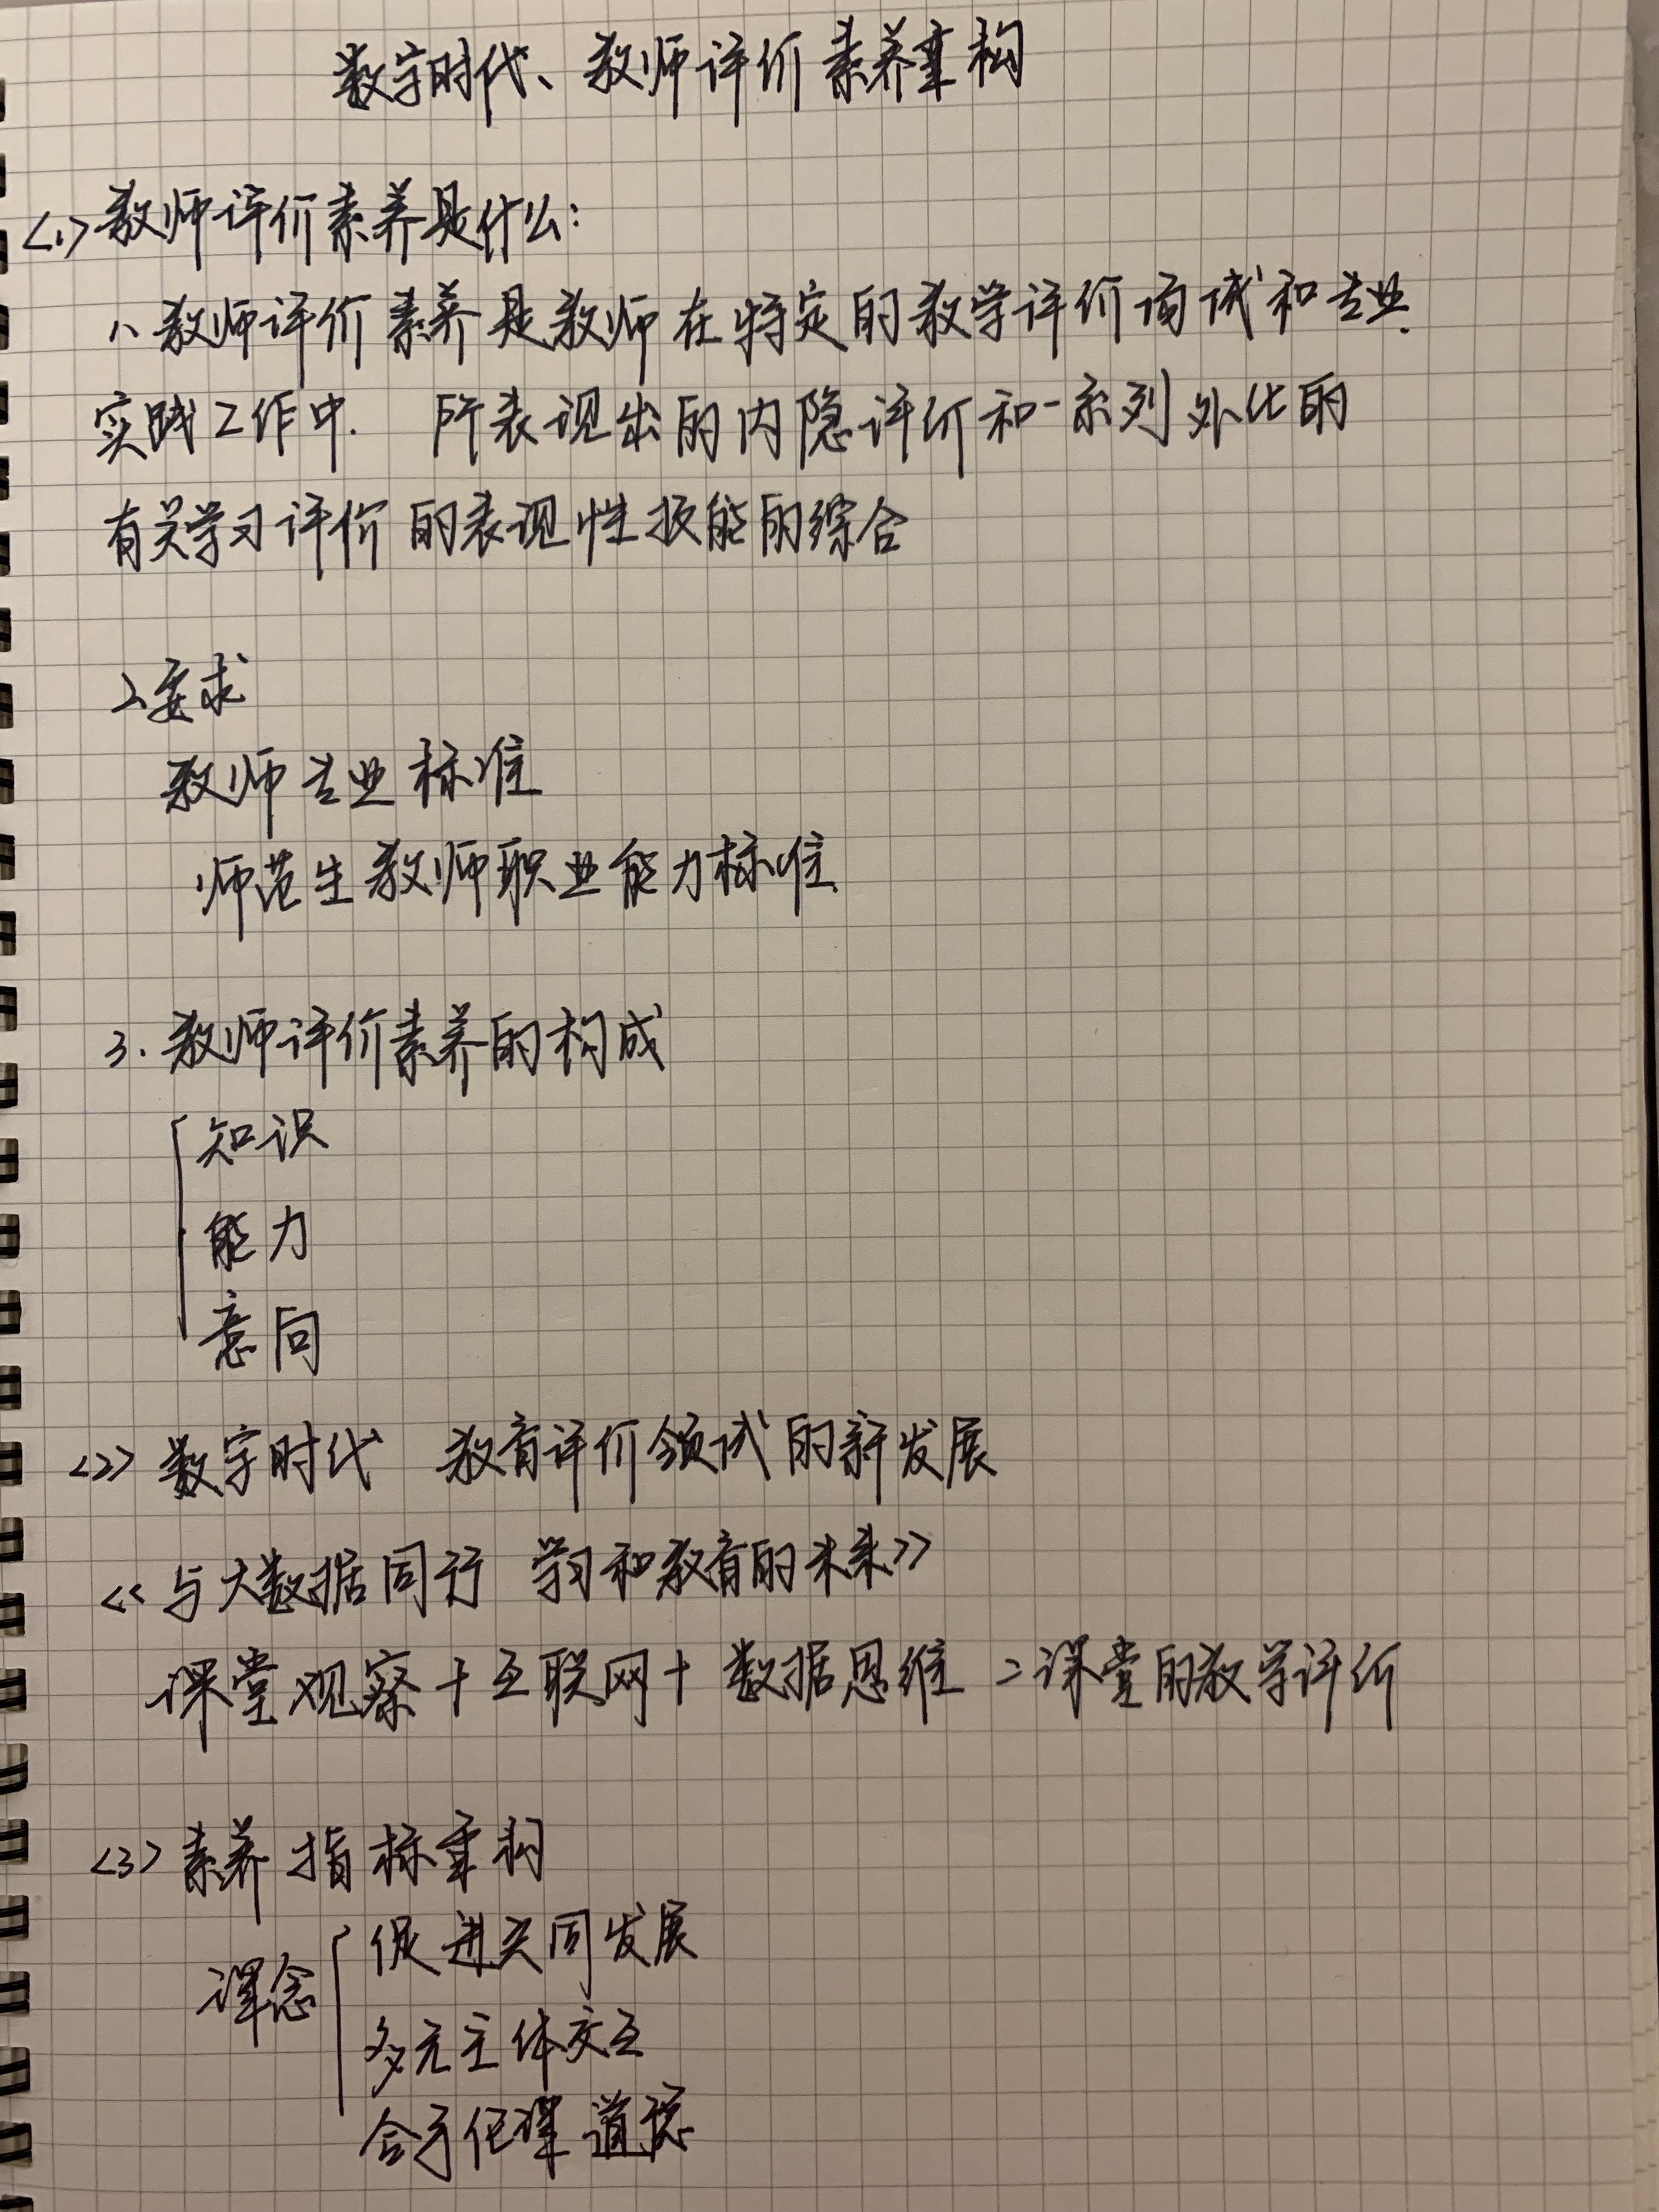 数字时代、教师评价素养重构
<1>教师评价素养是什么:
1、教师评价素养是教师在特定的教学评价 和专业.
实践工作中. 所表现出的内隐评价和一系列外化的
有关学习评价的表现性技能的综合
2.要求
教师专业标准
师范生教师职业能力标准.
3.教师评价素养的构成
知识
能力
意向
<2>数字时代 教育评价领域的新发展
<<与大数据同行 学习和教育的未来>>
课堂观察+互联网+数据思维=课堂的教学评价
<3>素养指标重构
理念
促进共同发展
多元主体交互
合乎伦理道德